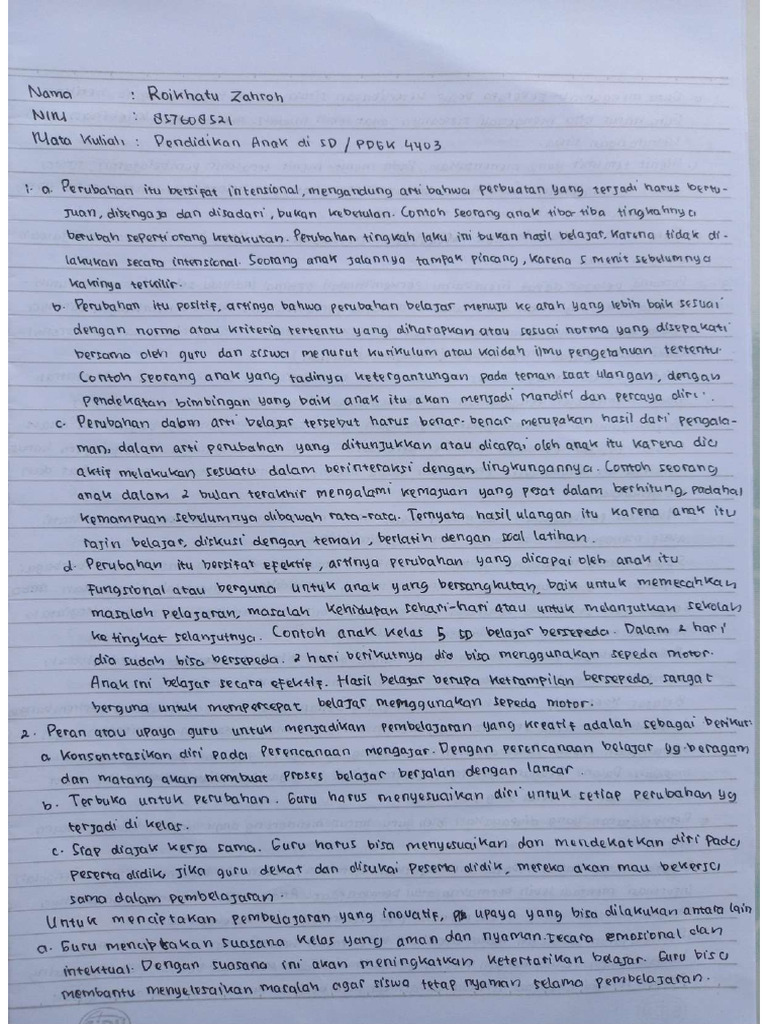 Nama : Roikhatu Zahroh
NIM : 857608521
Mata Kuliah : Pendidikan Anak di SD / PDGK 4403
1. a. Perubahan itu bersifat intensional, mengandung arti bahwa perbuatan yang terjadi harus bertu-
juan, disengaja dan disadari, bukan kebetulan. Contoh seorang anak tiba-tiba tingkahnya
berubah seperti orang ketakutan. Perubahan tingkah laku ini bukan hasil belajar, karena tidak di-
lakukan secara intensional. Seorang anak jalannya tampak pincang, karena 5 menit sebelumnya
kakinya terkilir.
b. Perubahan itu positif, artinya bahwa perubahan belajar menuju ke arah yang lebih baik sesuai
dengan norma atau kriteria tertentu yang diharapkan atau sesuai norma yang disepakati
bersama oleh guru dan siswa menurut kurikulum atau kaidah ilmu pengetahuan tertentu.
Contoh seorang anak yang tadinya ketergantungan pada teman saat ulangan, dengan
pendekatan bimbingan yang baik anak itu akan menjadi mandiri dan percaya diri.
c. Perubahan dalam arti belajar tersebut harus benar-benar merupakan hasil dari pengala-
man, dalam arti perubahan yang ditunjukkan atau dicapai oleh anak itu karena dia
aktif melakukan sesuatu dalam berinteraksi dengan lingkungannya. Contoh seorang
anak dalam 2 bulan terakhir mengalami kemajuan yang pesat dalam berhitung, padahal
kemampuan sebelumnya dibawah rata-rata. Ternyata hasil ulangan itu karena anak itu
rajin belajar, diskusi dengan teman, berlatih dengan soal latihan.
d. Perubahan itu bersifat efektif, artinya perubahan yang dicapai oleh anak itu
fungsional atau berguna untuk anak yang bersangkutan, baik untuk memecahkan
masalah pelajaran, masalah kehidupan sehari-hari atau untuk melanjutkan sekolah
ke tingkat selanjutnya. Contoh anak kelas 5 SD belajar bersepeda. Dalam 2 hari
dia sudah bisa bersepeda. 2 hari berikutnya dia bisa menggunakan sepeda motor.
Anak ini belajar secara efektif. Hasil belajar berupa ketrampilan bersepeda sangat
berguna untuk mempercepat belajar menggunakan sepeda motor.
2. Peran atau upaya guru untuk menjadikan pembelajaran yang kreatif adalah sebagai berikut:
a. Konsentrasikan diri pada perencanaan mengajar. Dengan perencanaan belajar yg beragam
dan matang akan membuat proses belajar berjalan dengan lancar.
b. Terbuka untuk perubahan. Guru harus menyesuaikan diri untuk setiap perubahan yg
terjadi di kelas.
c. Siap diajak kerja sama. Guru harus bisa menyesuaikan dan mendekatkan diri pada
peserta didik, jika guru dekat dan disukai peserta didik, mereka akan mau bekerja
sama dalam pembelajaran.
Untuk menciptakan pembelajaran yang inovatif, upaya yang bisa dilakukan antara lain
a. Guru menciptakan suasana kelas yang aman dan nyaman secara emosional dan
intektual. Dengan suasana ini akan meningkatkan ketertarikan belajar. Guru bisa
membantu menyelesaikan masalah agar siswa tetap nyaman selama pembelajaran.